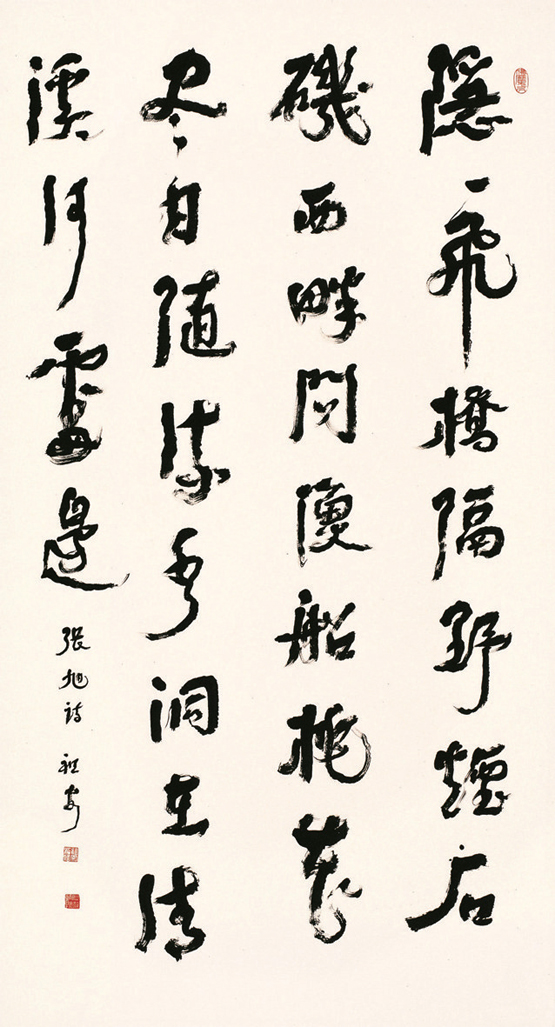 隱々飛橋隔野煙石
磯西畔問漁船桃花
尽日隨流水洞在清
溪何處邊
張旭詩